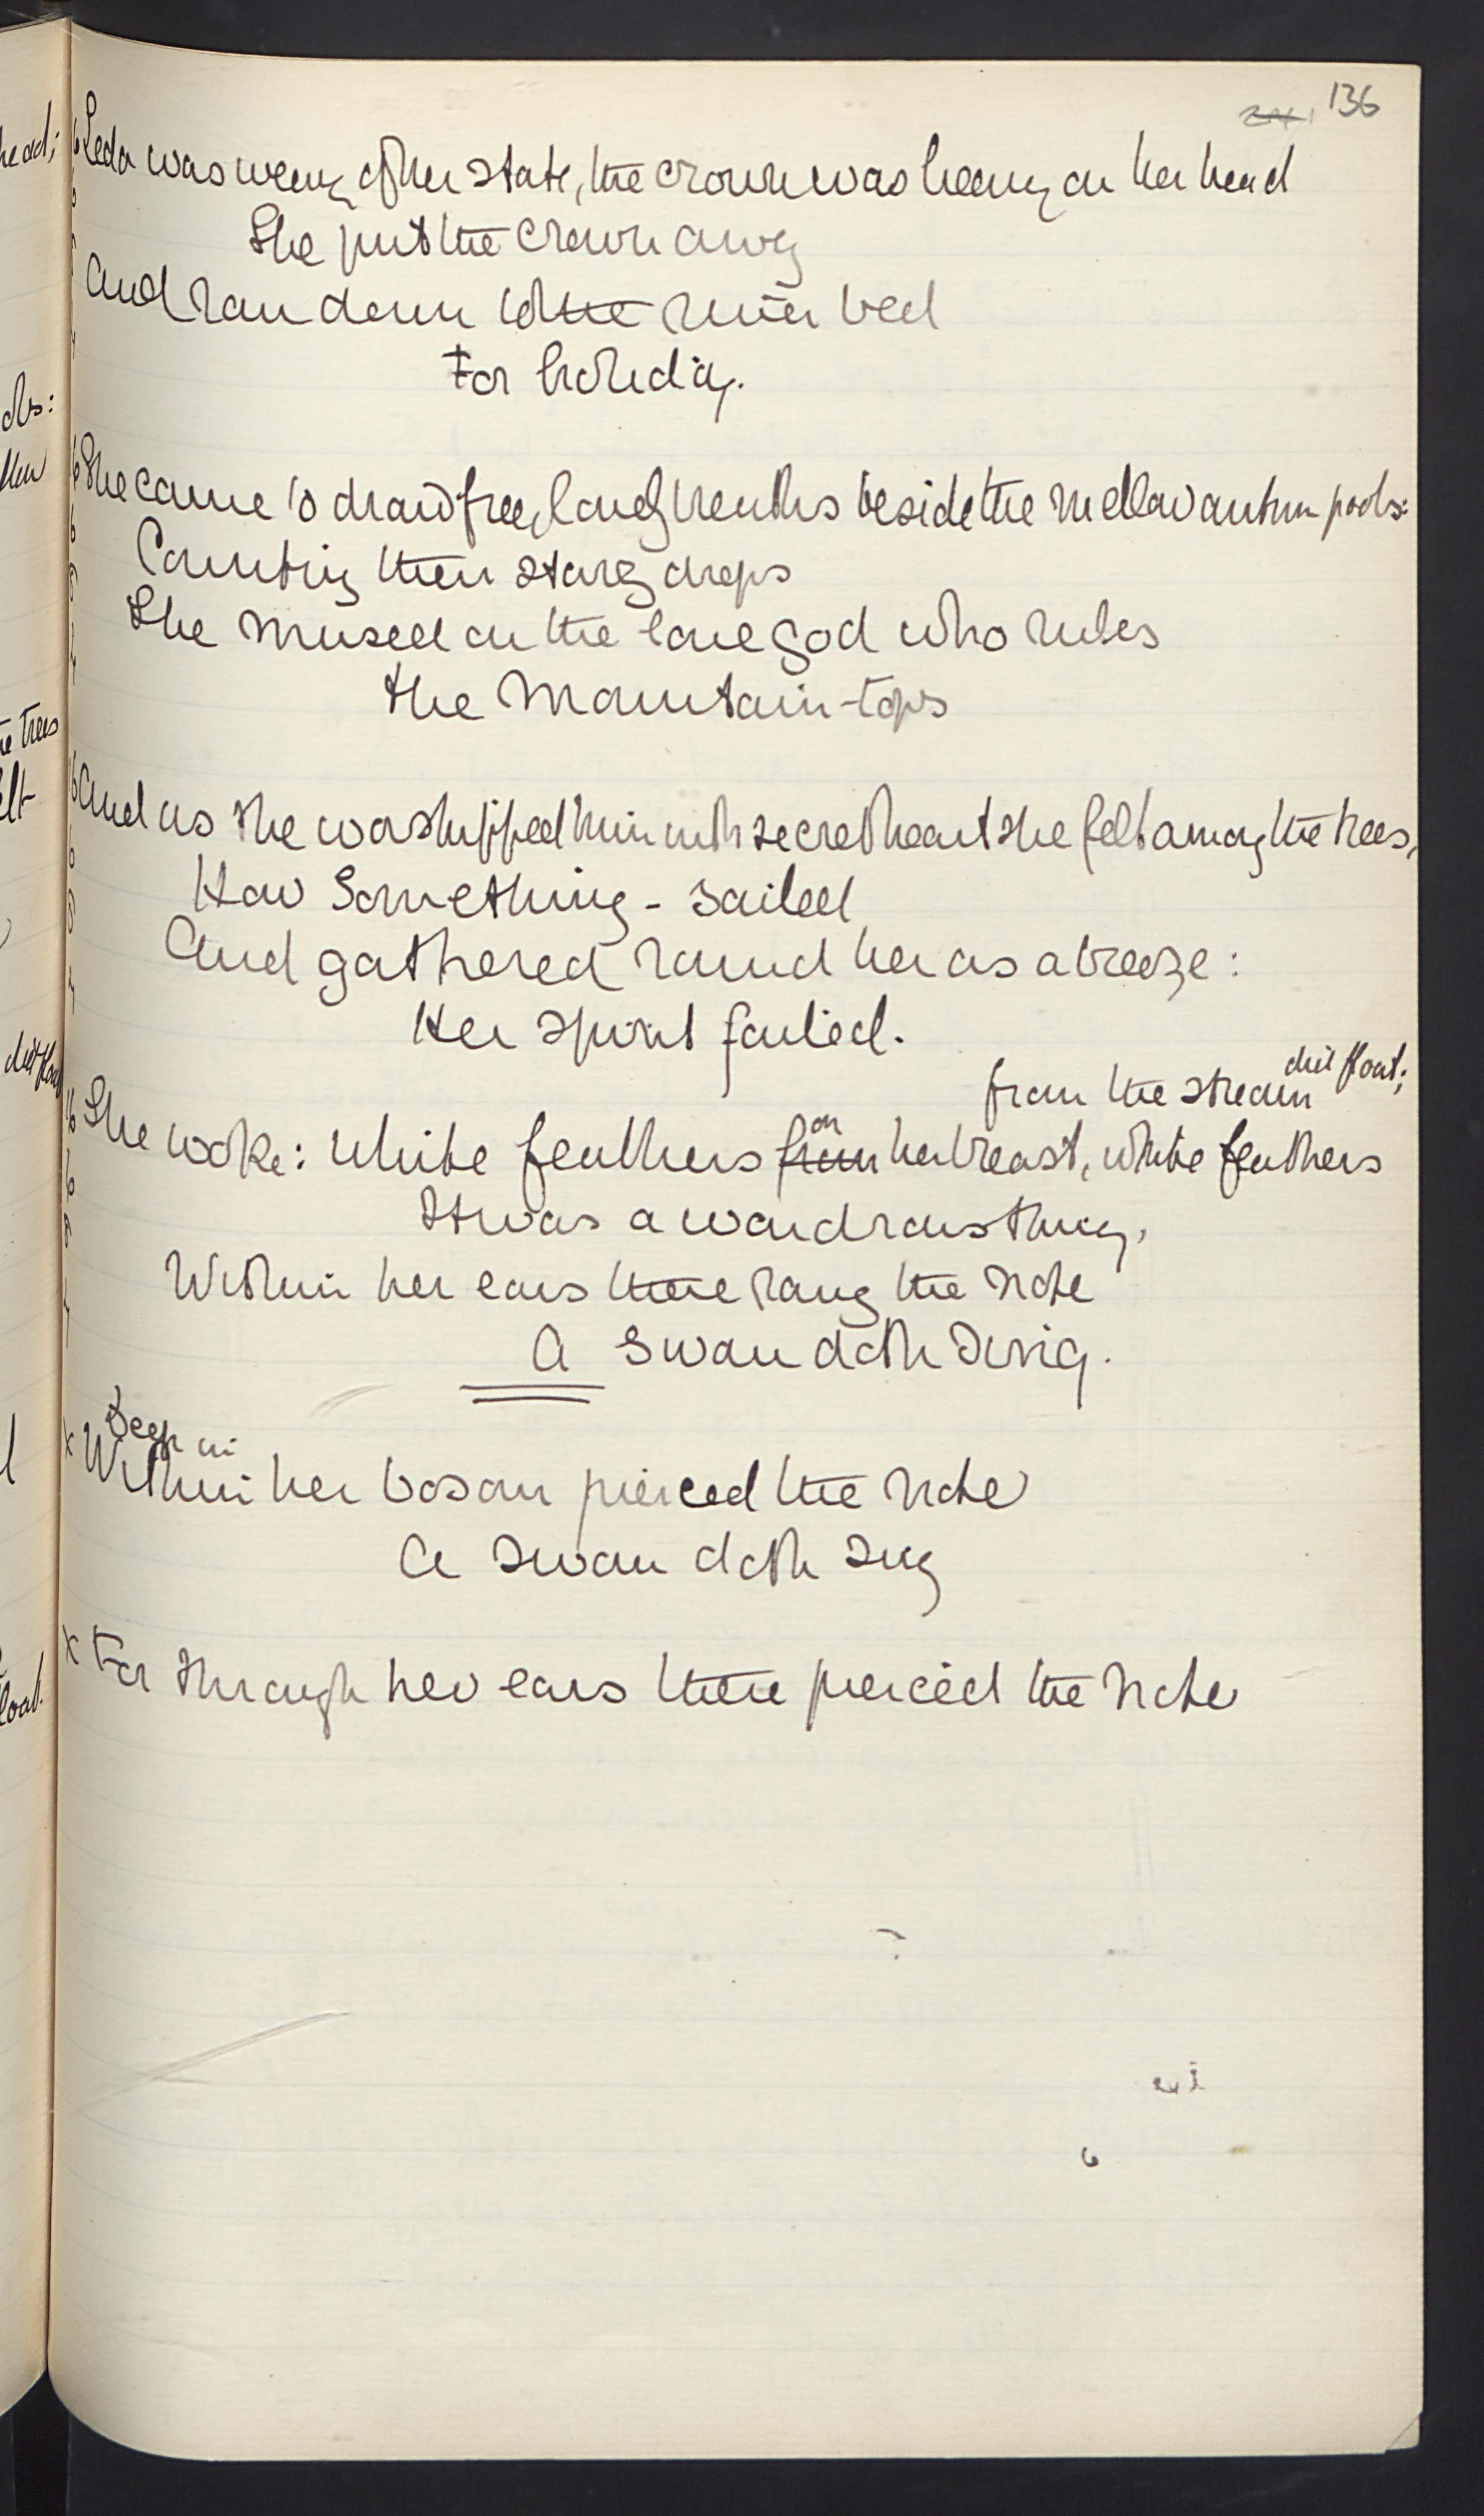 136
Leda was weary of her state, the crown was heavy on her head
She put the crown away
And ran down to the river bed
For holiday.
She came to draw free, long breaths beside the mellow autumn pools:
Counting their starry drops
She mused on the lone god who rules
the Mountain-tops
And as she worshipped him with secret heart she felt among the trees,
How Something - sailed
And gathered round her as a breeze:
Her spirit failed.
from the stream did float;
on
She woke: white feathers from her breast, white feathers
It was a wondrous thing,
Within her ears there rang the note
A Swan doth Sing.
Deep in
x Within her bosom pierced the note
A Swan doth sing
x For through her ears there pierced the note